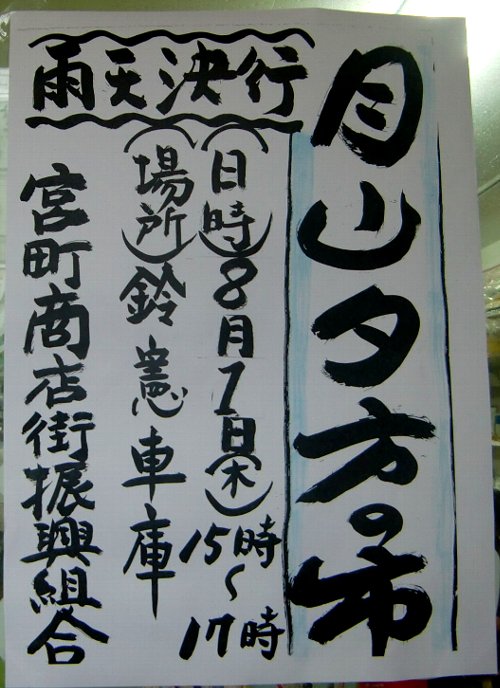 月山夕方の市
雨天決行
(日時)8月1日(木)15時～17時
(場所)鈴憲車庫
宮町商店街振興組合